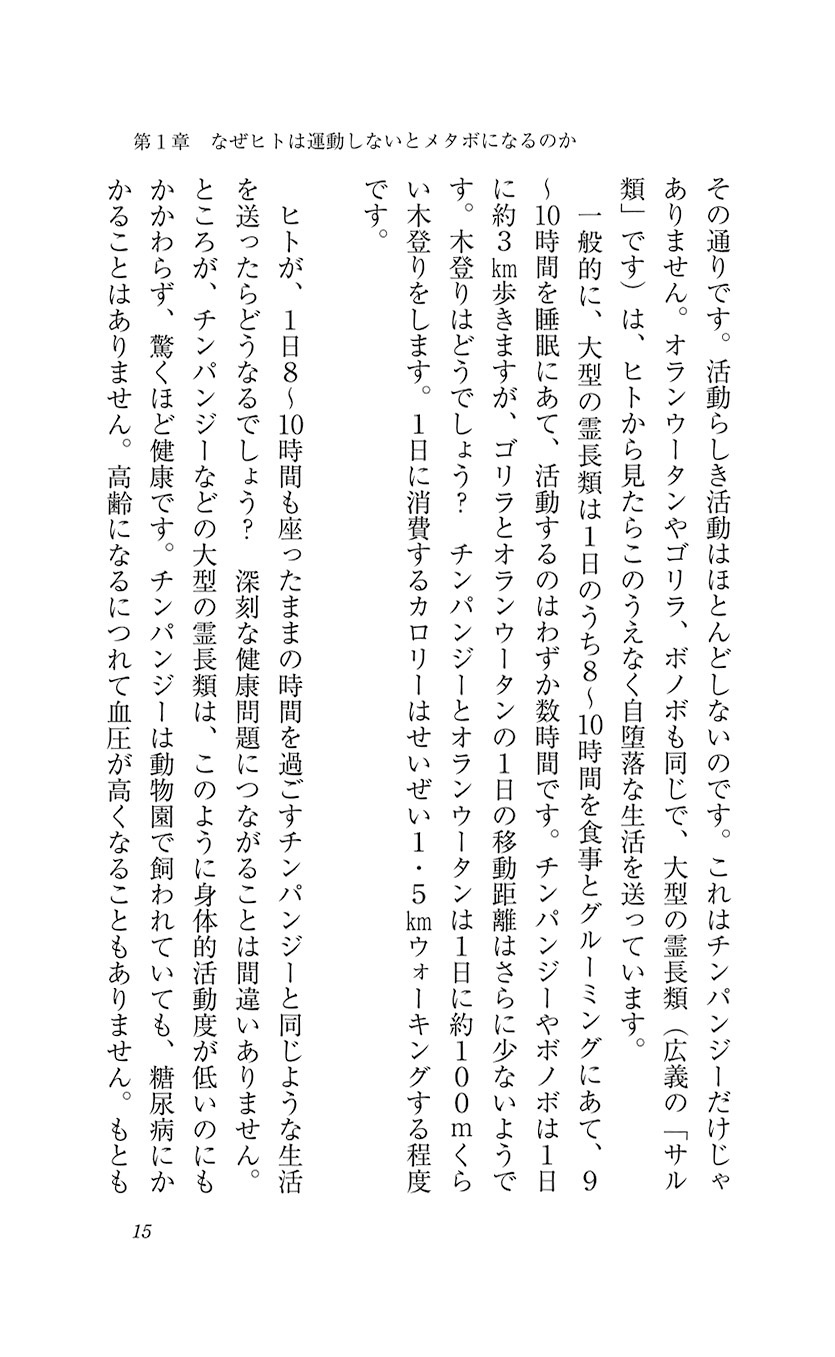 第１章　なぜヒトは運動しないとメタボになるのか
その通りです。活動らしき活動はほとんどしないのです。これはチンパンジーだけじゃ
ありません。オランウータンやゴリラ、ボノボも同じで、大型の霊長類（広義の「サル
類」です）は、ヒトから見たらこのうえなく自堕落な生活を送っています。
　一般的に、大型の霊長類は１日のうち８～10時間を食事とグルーミングにあて、９
～10時間を睡眠にあて、活動するのはわずか数時間です。チンパンジーやボノボは１日
に約３㎞歩きますが、ゴリラとオランウータンの１日の移動距離はさらに少ないようで
す。木登りはどうでしょう？　チンパンジーとオランウータンは１日に約１００ｍくら
い木登りをします。１日に消費するカロリーはせいぜい１・５㎞ウォーキングする程度
です。
　ヒトが、１日８～10時間も座ったままの時間を過ごすチンパンジーと同じような生活
を送ったらどうなるでしょう？　深刻な健康問題につながることは間違いありません。
ところが、チンパンジーなどの大型の霊長類は、このように身体的活動度が低いのにも
かかわらず、驚くほど健康です。チンパンジーは動物園で飼われていても、糖尿病にか
かることはありません。高齢になるにつれて血圧が高くなることもありません。もとも
15